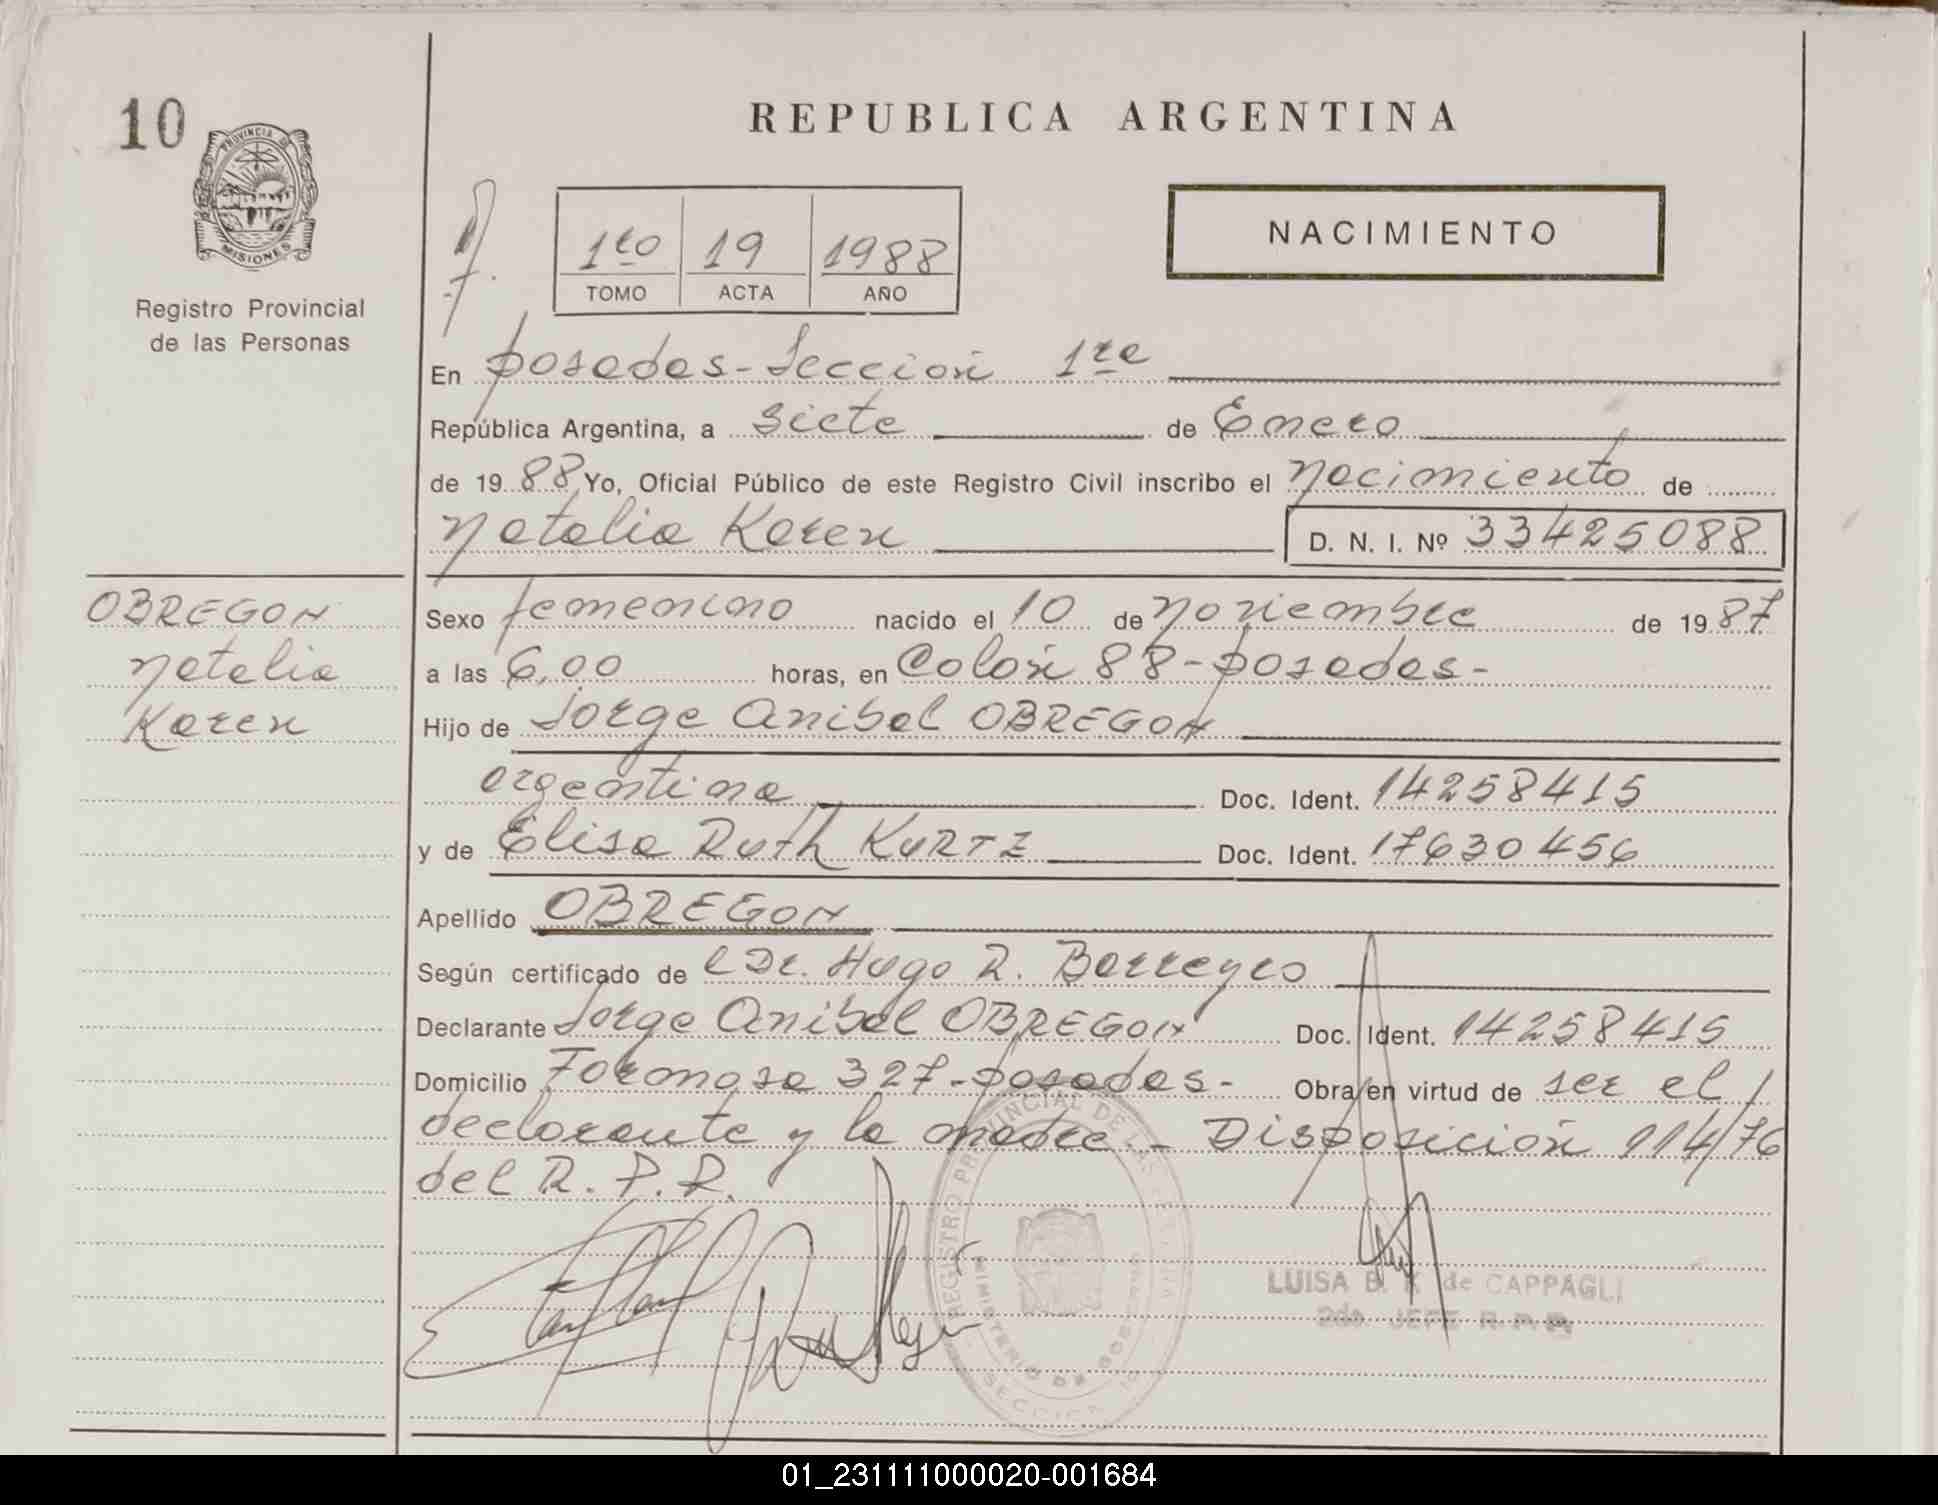 10
PROVINCIA DE
MISIONES
Registro Provincial
de las Personas
REPUBLICA ARGENTINA
1to 19 1988
TOMO ACTA AÑO
NACIMIENTO
En posadas - Sección 1ra
República Argentina, a siete de Enero
de 1988 Yo, Oficial Público de este Registro Civil inscribo el nacimiento de
Natalia Karen D. N. I. Nº 33425088
OBREGON
Natalia
Karen
Sexo femenino nacido el 10 de noviembre de 1987
a las 6,00 horas, en Colón 88 - posadas -
Hijo de Jorge Anibal OBREGON
argentina Doc. Ident. 14258415
y de Elisa Ruth KURTZ Doc. Ident. 17630456
Apellido OBREGON
Según certificado de l Dr. Hugo R. Barreyro
Declarante Jorge Anibal OBREGON Doc. Ident. 14258415
Domicilio Formosa 327 - posadas - Obra en virtud de ser el
declarante y la madre - Disposición 114/76
del R. P. P.
REGISTRO PROVINCIAL DE LAS
MINISTERIO DE GOBIERNO
SECCION
LUISA B. K de CAPPAGLI
2do. JEFE R. P. P.
01_231111000020-001684